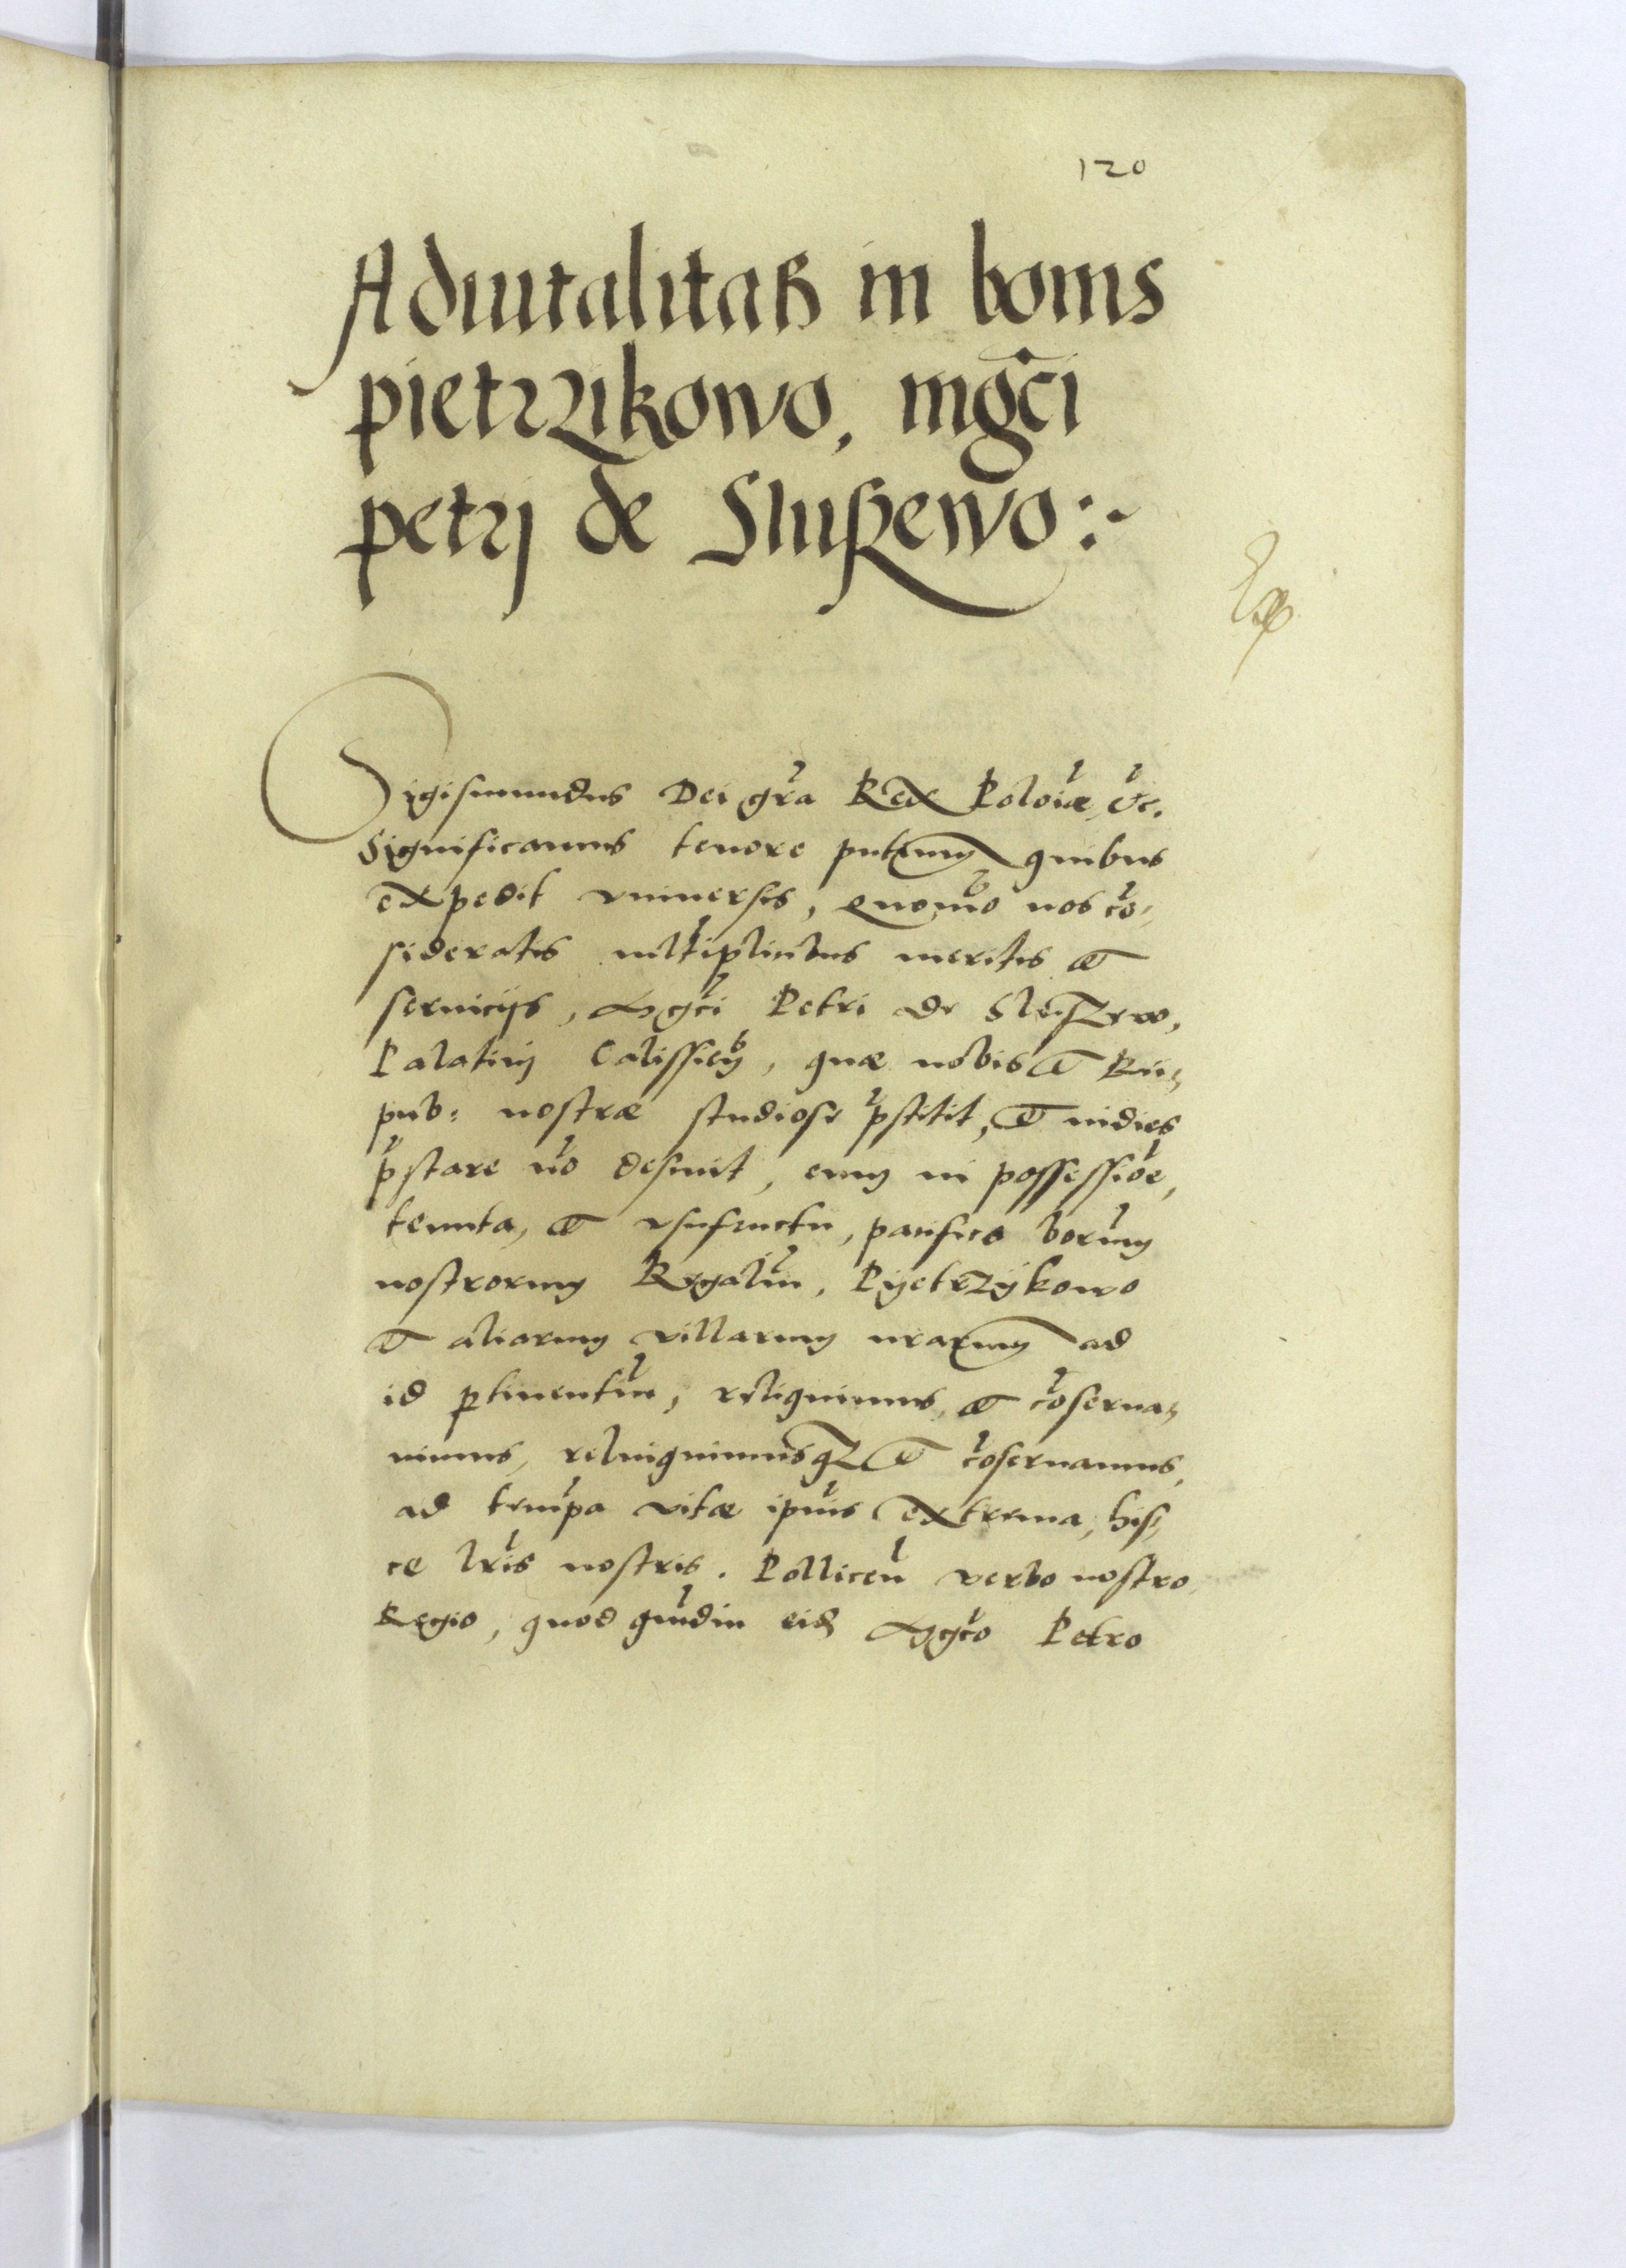 120
Aduitalitatis in bonis
pietrzikowo, mg̃ci
petrj de Slußewo:~
Sigismundus Dei gr̃a Rex Polon̄iæ, &c̃.
Significamus tenore pñtium quibus
expedit vniuersis, Quomõ nos cõ-
sideratis mltiplicibus meritis et
seruicijs, Mgc̃i Petri de Sluszewo,
Palatinj Calissieñ, quæ nobis et Rei-
pub: nostræ studiose p̃stitit, et indies
p̃stare nõ desinit, eum in possessiõe,
tenuta, et vsufructu, pacifico bonrũm
nostrorum Regaliũm, Pyetrzykowo
et aliarum villarum nrarum ad
id ptinentiũm, reliquimus, et cõserua-
uimus, relinquimusqz et cõseruamus,
ad temp̃a vitæ ip̃ius extrema, his-
ce lr̃is nostris. Pollicem̃ verbo nostro
Regio, quod quãdiu eid Mgc̃o Petro